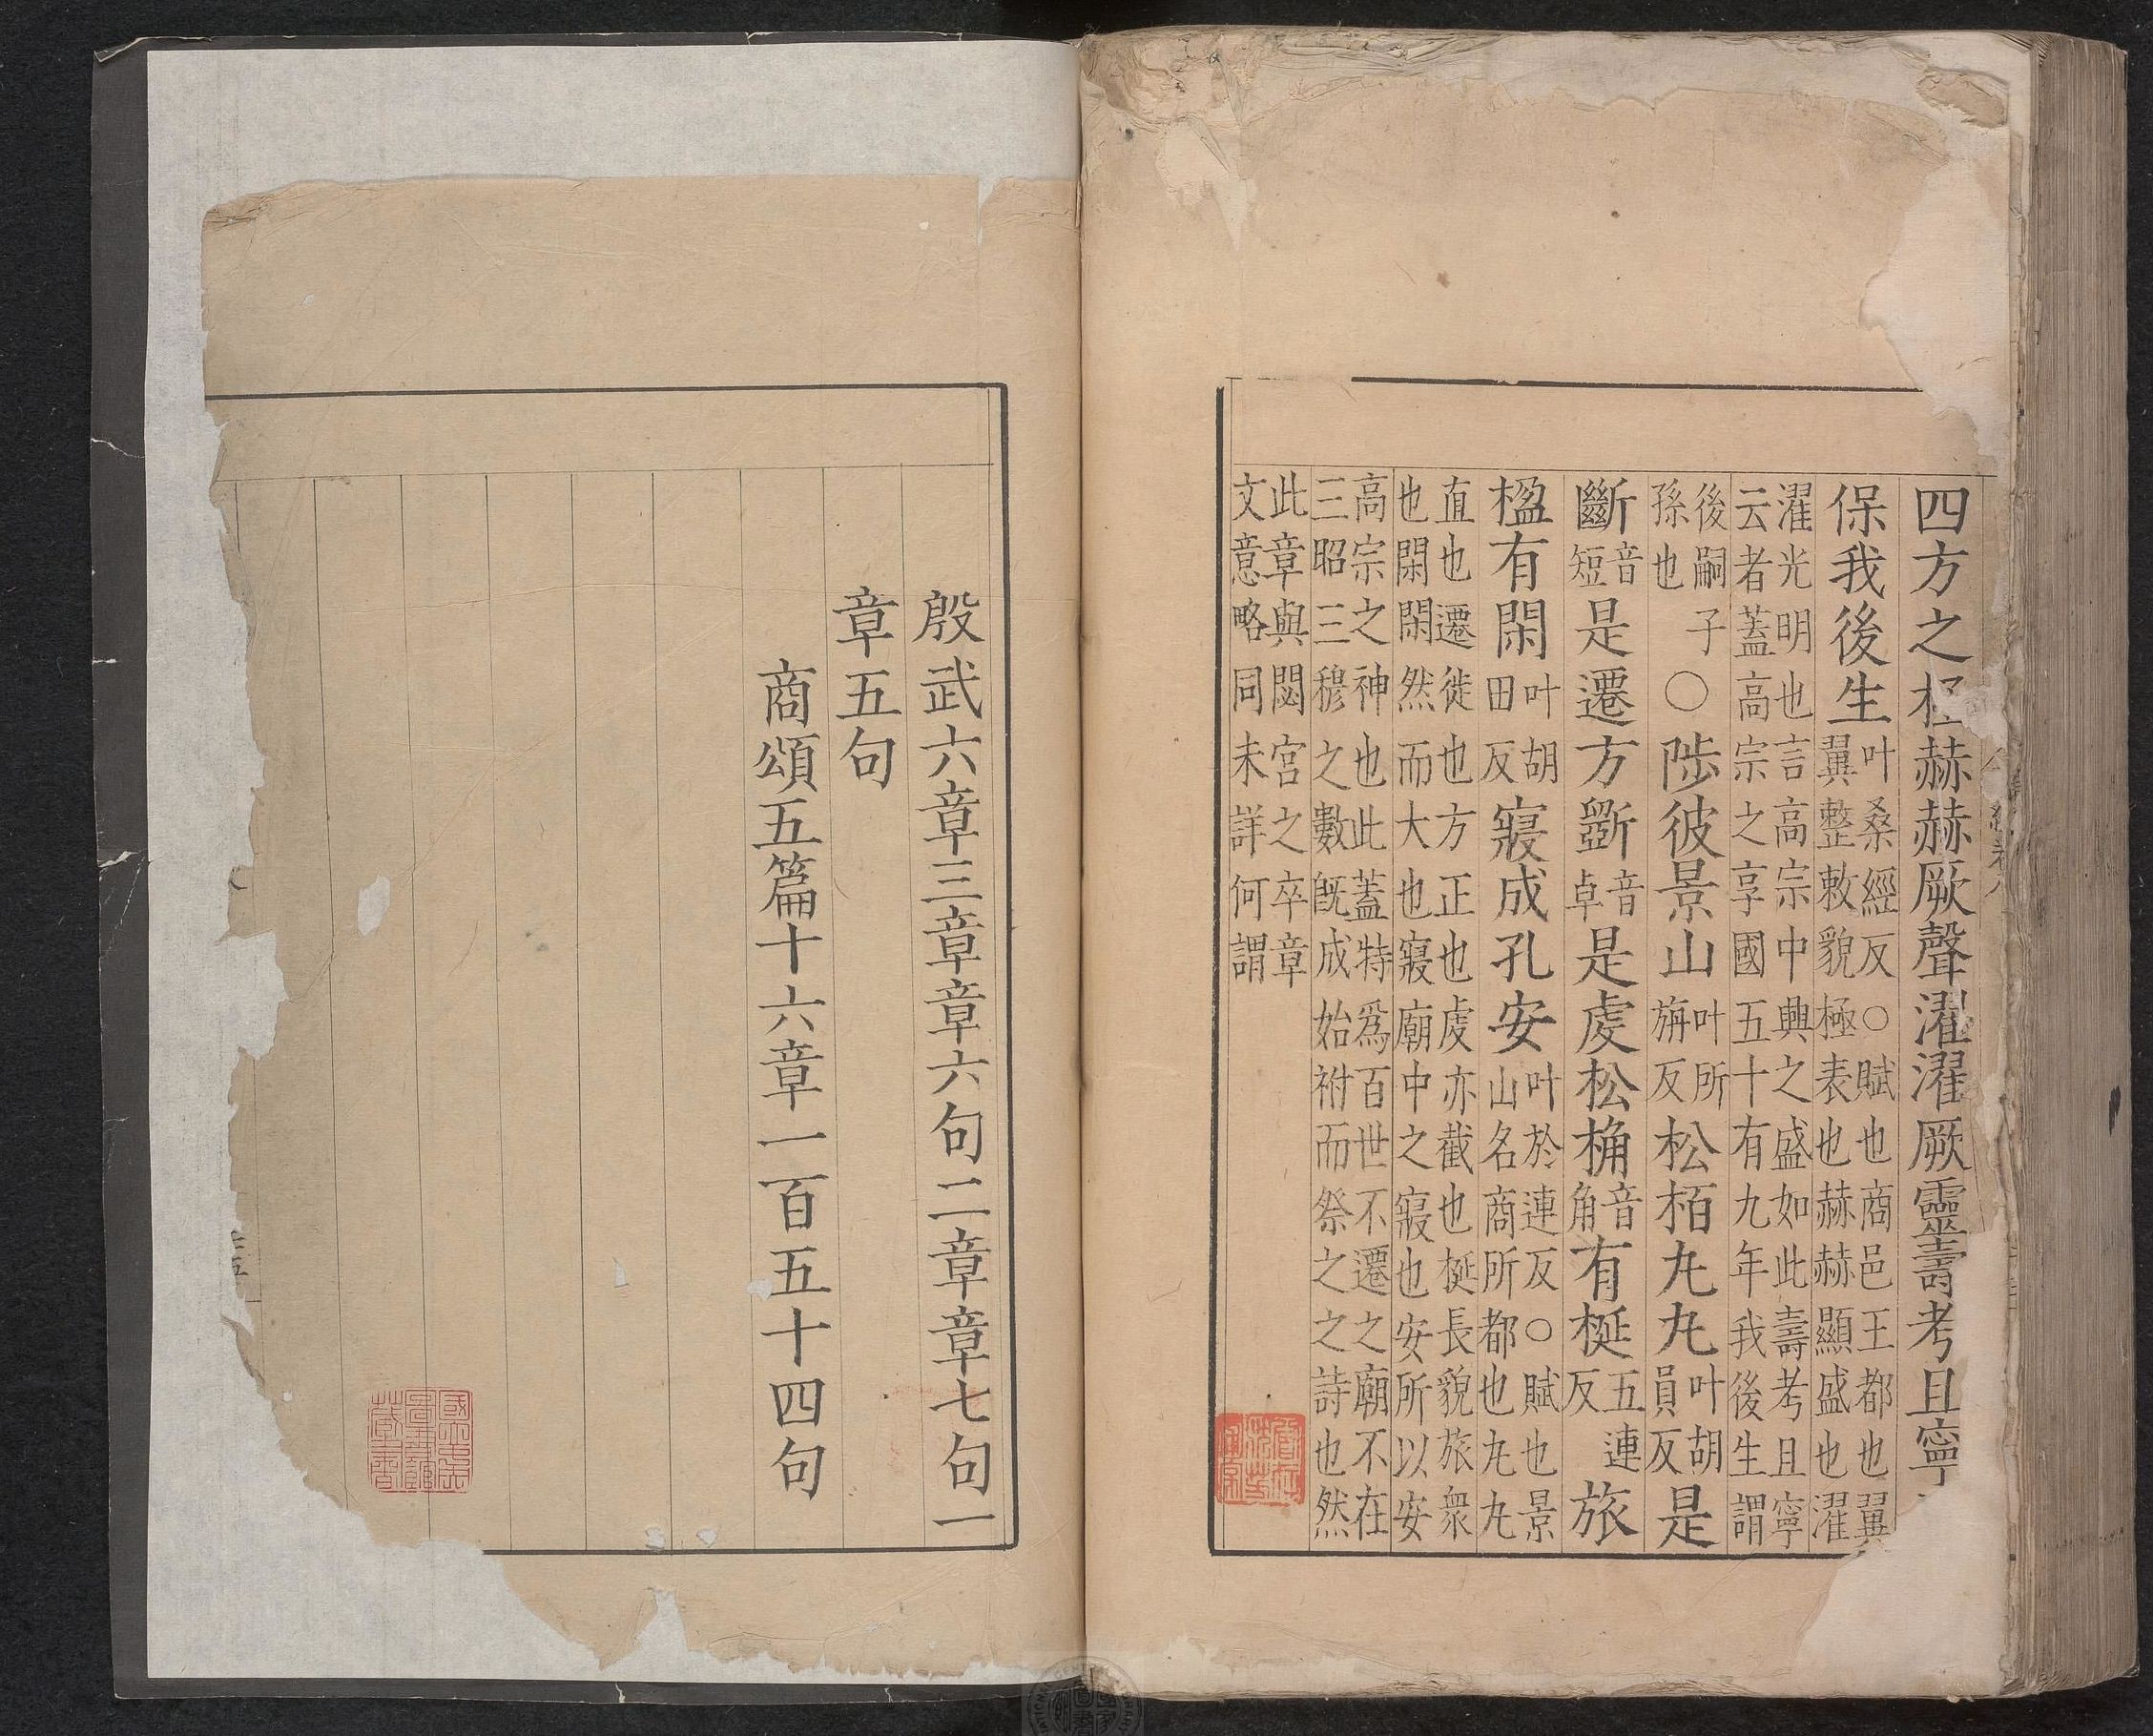 四方之極赫赫厥聲濯濯厥靈壽考且寧
保我後生叶桑經反○賦也商邑王都也翼
翼整敕貌極表也赫赫顯盛也濯
濯光明也言高宗中興之盛如此壽考且寧
云者蓋高宗之享國五十有九年我後生謂
後嗣子
孫也
○陟彼景山叶所旃反松栢丸丸叶胡員反是
斷音短是遷方斲音卓是虔松桷音角有梴五連反旅
楹有閑叶胡田反寢成孔安叶於連反○賦也景
山名商所都也丸丸
直也遷徙也方正也虔亦截也梴長貌旅衆
也閑閑然而大也寢廟中之寢也安所以安
高宗之神也此蓋特爲百世不遷之廟不在
三昭三穆之數旣成始祔而祭之之詩也然
此章與閟宮之卒章
文意略同未詳何謂
殷武六章三章章六句二章章七句一
章五句
商頌五篇十六章一百五十四句